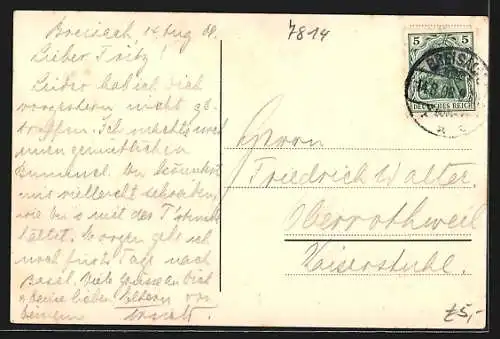 Breisach 14 Aug 08.
7814
Lieber Fritz!
Leider hab ich Dich
vorgestern nicht ge-
troffen. Ich machte
einen gemütlichen
Bummel. Du könntest
mir vielleicht schreiben,
wie Du es mit der
hältst. Morgen geh ich
noch fünf Tage nach
Basel. Viele Grüsse an Dich
& Deine lieben Eltern von
Deinem
5 5
DEUTSCHES REICH
BREISACH
14.8.08
Herrn
Friedrich Walter.
Oberrothweil
Kaiserstuhl.
£5,-